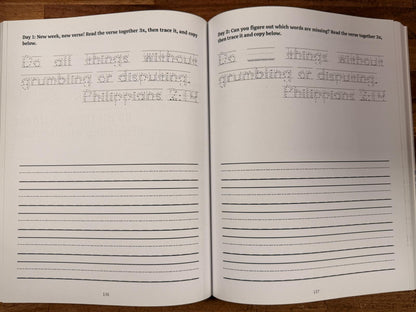 Day 1: New week, new verse! Read the verse together 3x, then trace it, and copy
below.
Do all things without
grumbling or disputing.
Philippians 2:14
136
Day 2: Can you figure out which words are missing? Read the verse together 3x,
then trace it and copy below.
Do ___ things without
grumbling or disputing.
Philippians 2:14
137